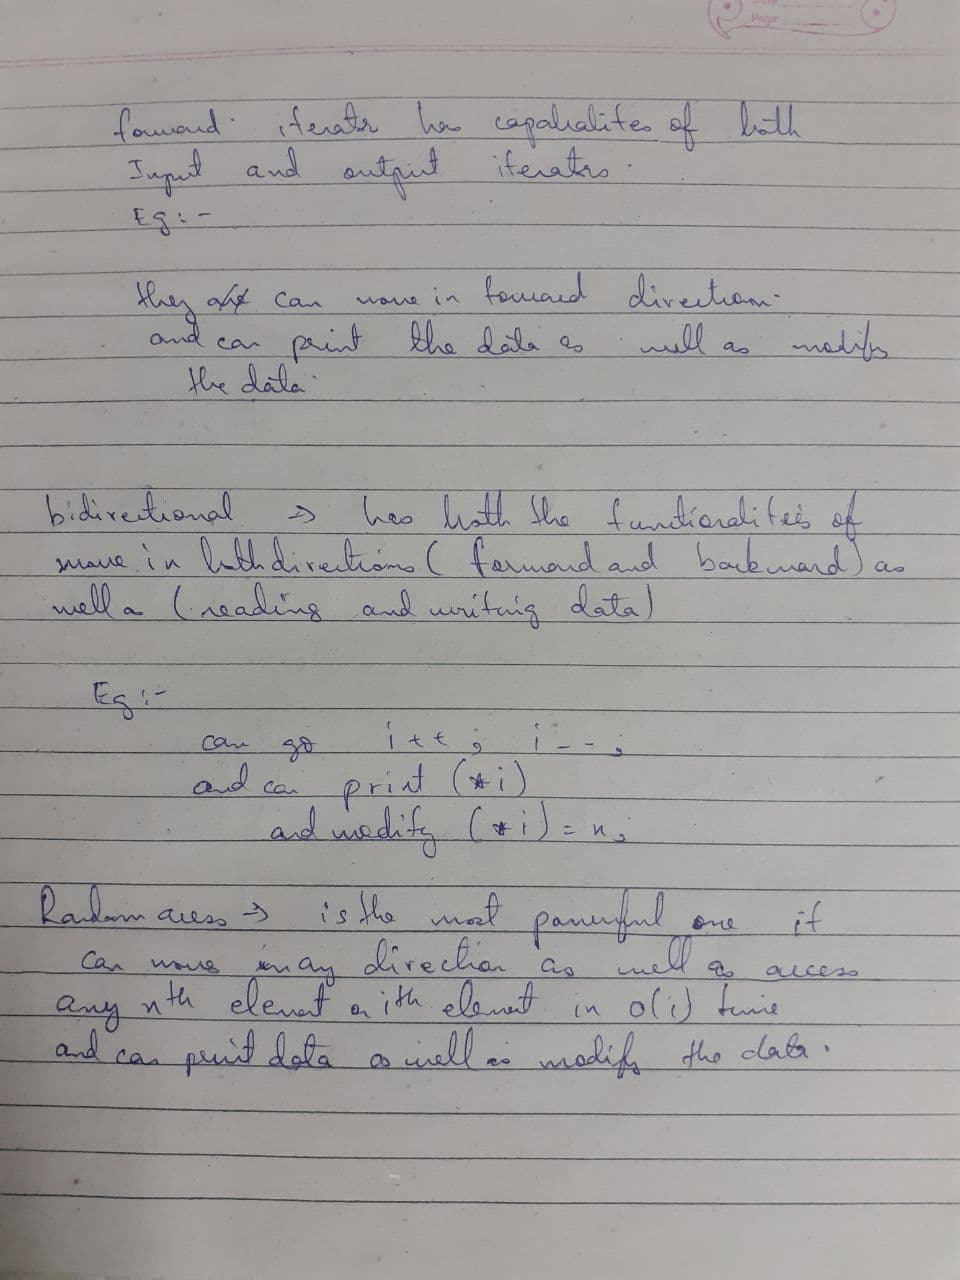 Page
forward iterator has capabalites of both
Input and output iterators.
Eg:-
they can move in forward direction.
and can print the data as well as modify
the data.
bidirectional => has both the functionalities of
move in both directions ( forward and backward) as
well as (reading and writing data)
Eg:-
can go i++; i--;
and can print (*i)
and modify (*i) = n;
Random access -> is the most powerful one it
can move in any direction as well as access
any nth element or ith element in o(1) time
and can print data as well as modify the data.